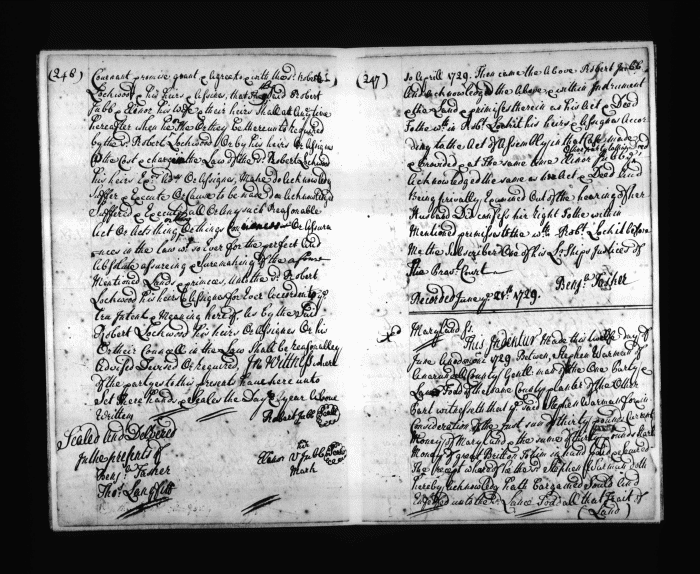 (246)
Covenant promise grant & agree to & with the sd. Robert
Lockwood his heirs & assigns, that the said Robert
Jubb & Elenor his wife & their heirs Shall at any time
hereafter when he Or Either be thereunto required
by the sd. Robert Lockwood Or by his heirs Or assigns
at the Cost & charge in the Law of the sd. Robert Lockwood
his heirs Or assigns, make do acknowledg
Suffer & Execute Or Cause to be made do acknowledged
Suffered & Executed all & every such Reasonable
act Or acts thing Or things Or assura
ances in the law wt. so Ever for the perfect and
absolute assuring & suremaking of the afore
Mentioned Lands & premises, unto the sd. Robert
Lockwood his heirs & assigns for Ever according to ye.
true Intent & Meaning hereof as by the said
Robert Lockwood his heirs Or assigns Or his
Or their Councell in the Law shall be reasonably
advised Devised Or required In Witness where
of the partys to this presents have hereunto
Set there hands & Seales the Day & year above
Written
Robert Jubb
Sealed And Delivered
In the presents of
his
Elenor V Jubb
Mark
Benja. Tasker
Tho. Langfitt
(247)
10 Aprill 1729. Then came the above Robert Jubb
And acknowledged the above & within Instrument
& the Land & premises therein as his act & Deed
to the wth. in Robt. Lockwd. his heirs & assigns accor
ding to the Act of Assembly in that Case made
& provided at the same time Elinor Jubb
acknowledged the same as her act & Deed and
Being privately Examined Out of the hearing of her
Husband Did confess her right to the within
Mentioned premises to the wth. Robt. Lock it before
Me the Subscriber One of his Ld. Ships Justices of
the Provl. Court
Benja. Tasker
Recorded June ye. 21th. 1729.
Maryland ss.
This Indentur Made this day of
June annodomini 1729 Between Stephen Warman of
annarundel County Gentleman of the One Party &
of the same County planter of the Other
Part witnesseth that ye. said Stephen Warman for in
Consideration of the Just sum of thirty pounds Current
Money of Maryland &
Money of great Britton to him in hand paid
the receipt whereof he the sd. Stephen Warman doth
hereby acknowledg hath Bargained Sould and
unto the sd. all that Tract of
(Land)